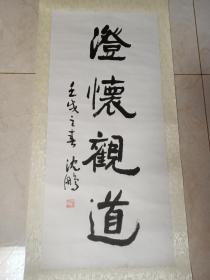 澄懷觀道
壬戌之春 沈鵬